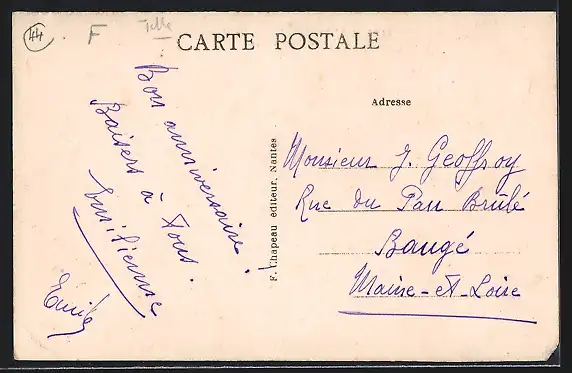 44
F
CARTE POSTALE
Adresse
Bon anniversaire !
Baisers à tous.
Emilienne
Emile
F. Chapeau éditeur, Nantes
Monsieur J. Geoffroy
Rue du Pau Brûlé
Baugé
Maine-et-Loire